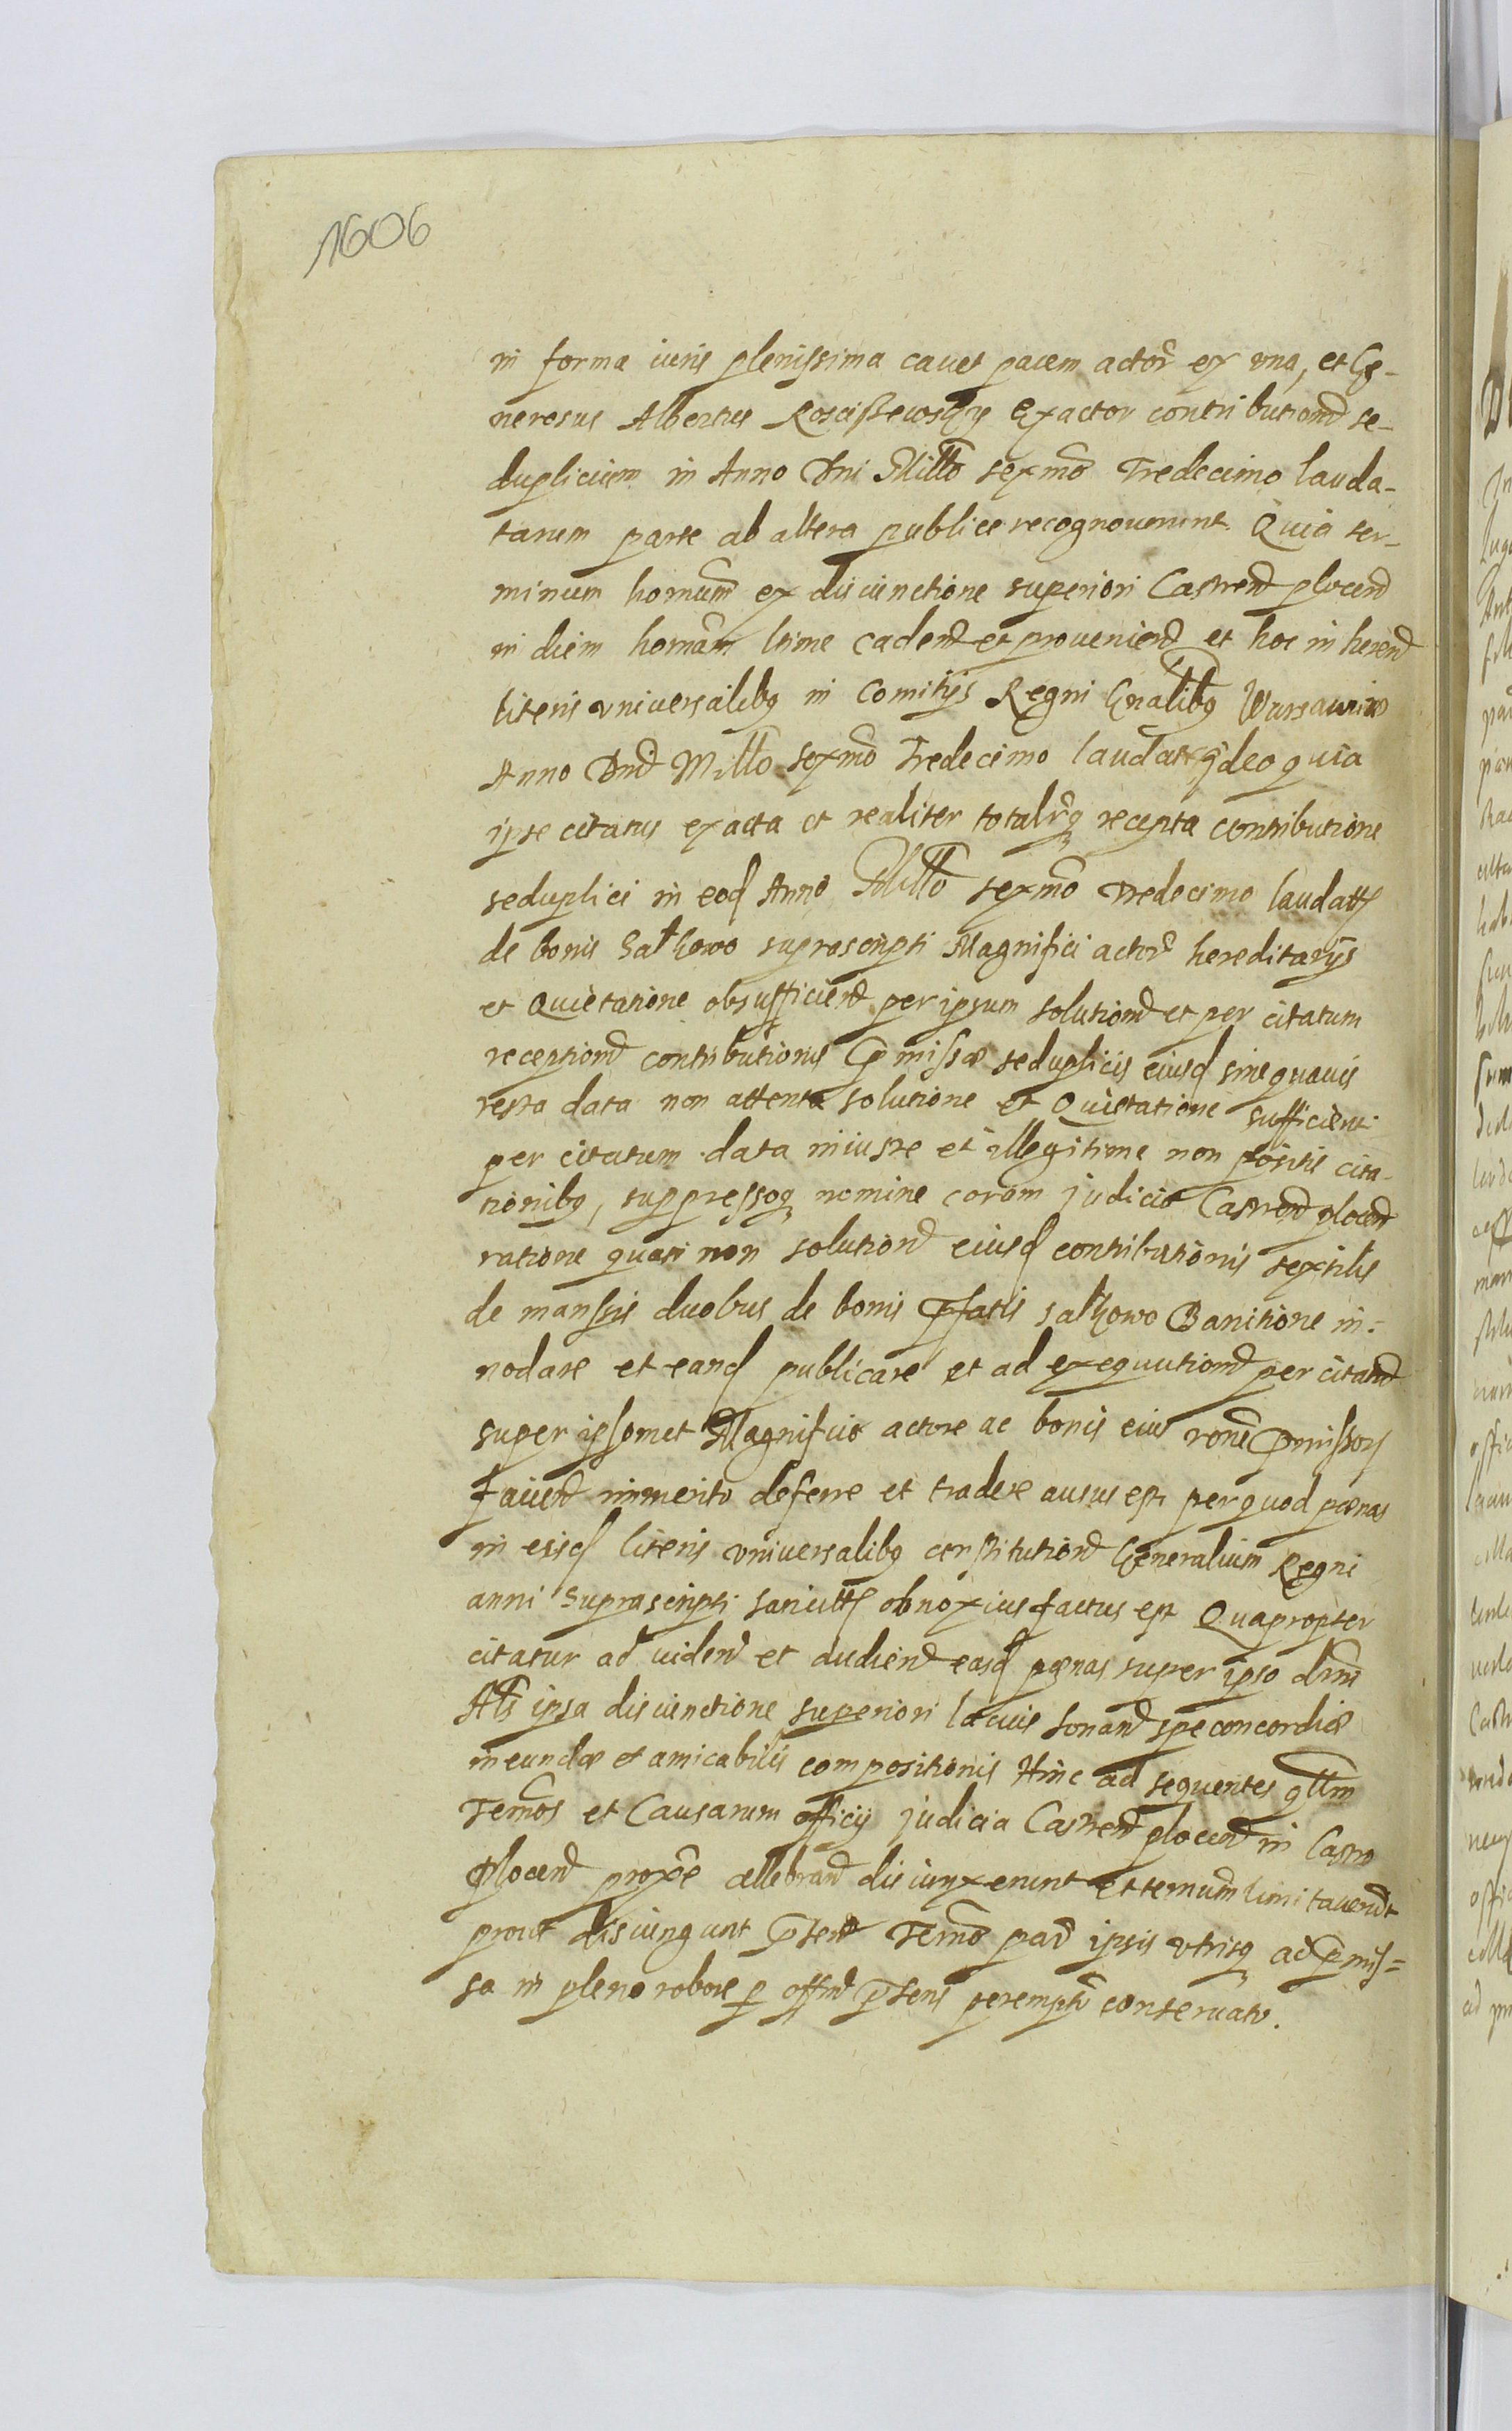 1606
in forma iuris plenissima cauet pacem actor̃ ex una, et Ge-
nerosus Albertus Rosciszewsky Exactor contributionũ se-
duplicium in Anno Dni Millo sexmo Tredecimo lauda-
tarum parte ab altera publice recognouerunt. Quia ter-
minum hornum ex disiunctione superiori Castrenñ plocenñ
in diem hornam ltime cadenñ et prouenienñ et hoc in herenñ
literis vniuersalibq in Comitijs Regni Gnalibq Warsauiæ
Anno Dnĩ Millo sexmo Tredecimo laudatis ideo quia
ipse citatus exacta et realiter totalrq recepta contributione
seduplici in eod Anno Millo sexmo Tredecimo laudatt
de bonis suprascripti Magnifici actor̃ hereditarijs
et Quietatione ob sufficienñ per ipsum solutionẽ et per citatum
receptionẽ contributionis p̃missæ seduplicis eiusd sine quauis
resta data non attenta solutione et Quietatione sufficient
per citatum data iniuste et illegitime non positis cita-
tionibq, suppressoq nomine coram judicio Castrenñ plocenñ
ratione quasi non solutionẽ eiusd contributionis sextilis
de mansis duobus de bonis p̃fatis Banitione in=
nodare et eand publicare et ad exequutionẽ per citatũ
super ipsomet Magnifico actore ac bonis eius rone p̃missor
faciend immerito deferre et tradere ausus est per quod pœnas
in eisd literis vniuersalibq constitutionũ Generalium Regni
anni suprascripti sancitt obnoxius factus est Quapropter
citatur ad videnñ et audienñ easd pœnas super ipso
Als ipsa disiunctione superiori latius sonanñ spe concordiæ
ineundæ et amicabilis compositionis Hinc ad sequentes qllm
Termos et Causarum officij judicia Castrenñ plocenñ in Castro
Plocenñ proxe celebranñ disiunxerunt et termum limitauerunt
prout disiungunt p̃senñ Termo par̃ ipsis vtrisq ad p̃mis=
sa in pleno robore p offm p̃sens perempt conseruato.